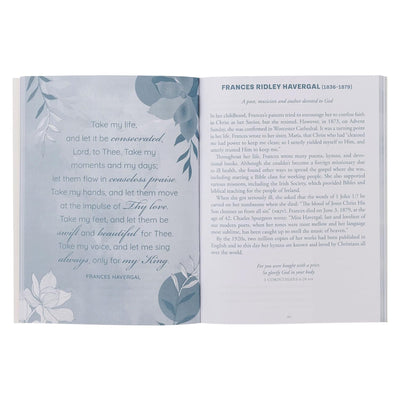 Take my life,
and let it be consecrated,
Lord, to Thee. Take my
moments and my days;
let them flow in ceaseless praise.
Take my hands, and let them move
at the impulse of Thy love.
Take my feet, and let them be
swift and beautiful for Thee.
Take my voice, and let me sing
always, only for my King.
FRANCES HAVERGAL
FRANCES RIDLEY HAVERGAL (1836-1879)
A poet, musician and author devoted to God
In her childhood, Frances's parents tried to encourage her to confess faith
in Christ as her Savior, but she resisted. However, in 1873, on Advent
Sunday, she was confirmed in Worcester Cathedral. It was a turning point
in her life, because, as she wrote to her sister, Maria, that Christ who had "cleansed
me had power to keep me clean; so I utterly yielded myself to Him, and
utterly trusted Him to keep me."
Throughout her life, Frances wrote many poems, hymns, and devo-
tional books. Although she couldn't become a foreign missionary due
to ill health, she found other ways to spread the gospel where she was,
including starting a Bible class for working people. She also supported
various missions, including the Irish Society, which provided Bibles and
biblical teaching to the people of Ireland.
When she got seriously ill, she asked that the words of 1 John 1:7 be
carved on her tombstone when she died: "The blood of Jesus Christ His
Son cleanses us from all sin" (NKJV). Frances died on June 3, 1879, at the
age of 42. Charles Spurgeon wrote: "Miss Havergal, last and loveliest of
our modern poets, when her tones were most mellow and her language
most sublime, has been caught up to swell the music of heaven."
By the 1920s, two million copies of her works had been published in
English and to this day her hymns are known and loved by Christians all
over the world.
For you were bought with a price.
So glorify God in your body.
1 CORINTHIANS 6:20